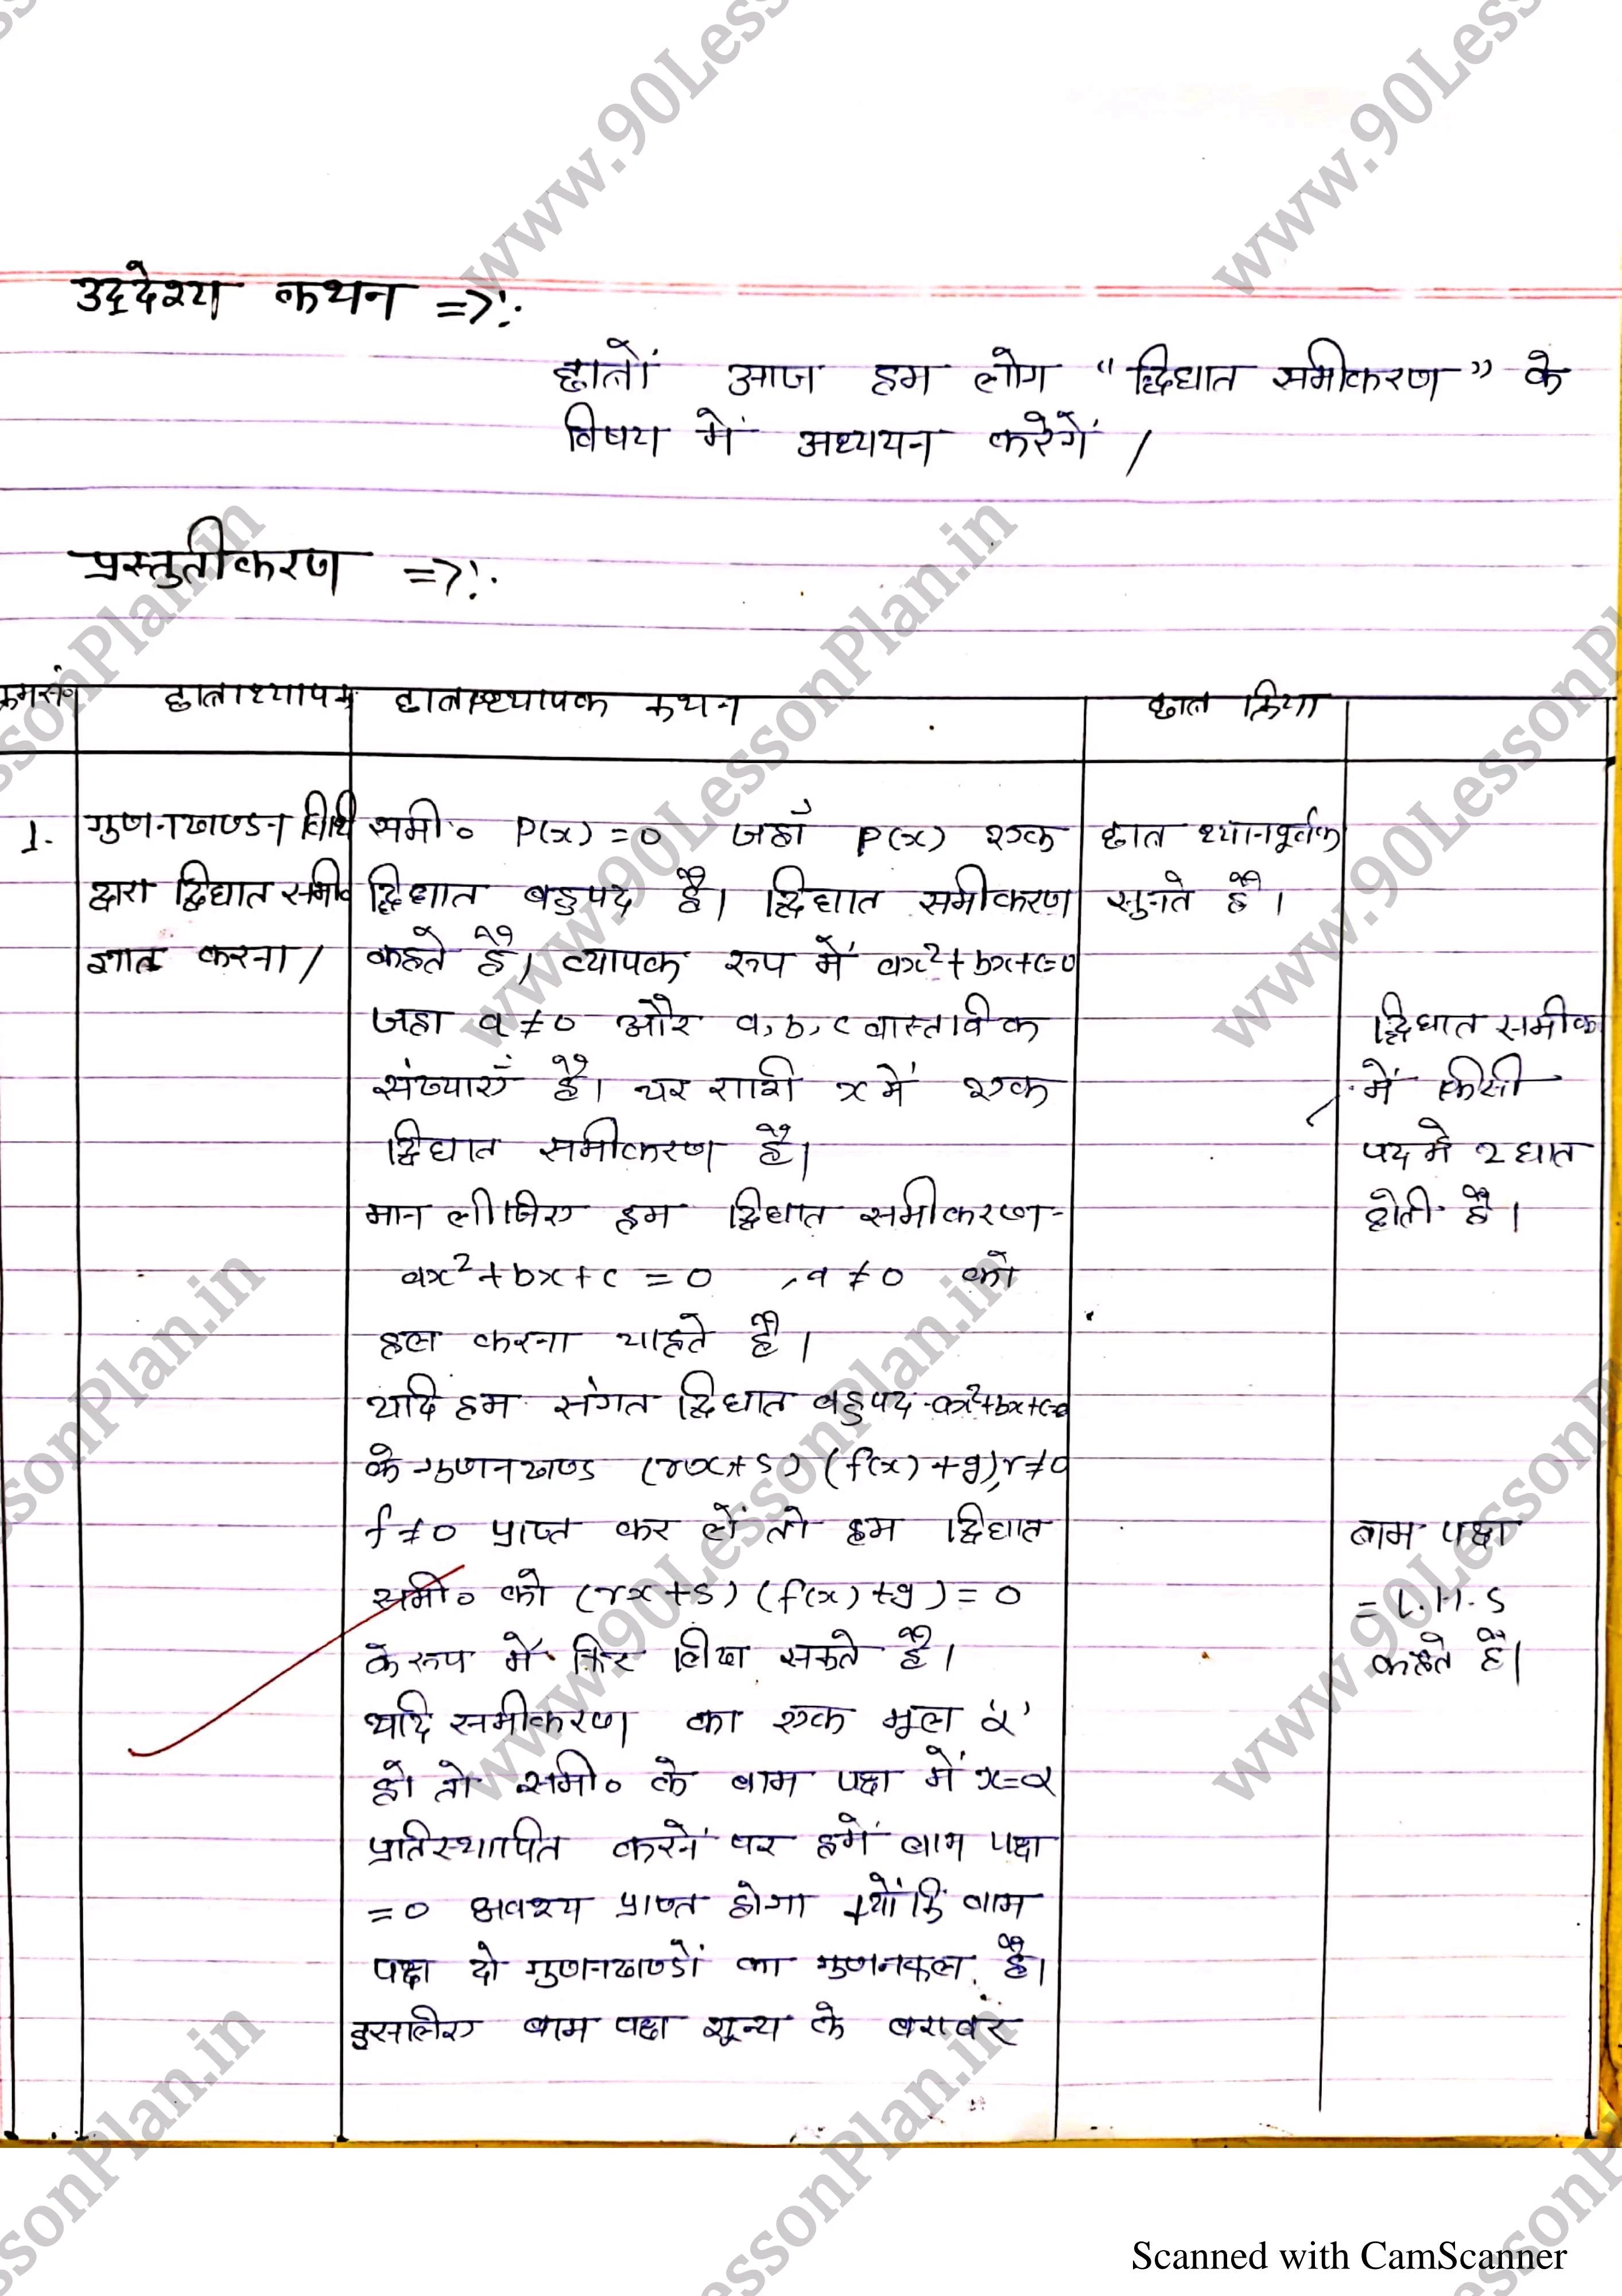 उद्देश्य कथन =>:
छात्रों आज हम लोग "द्विघात समीकरण" के
विषय में अध्ययन करेगें /
प्रस्तुतीकरण =>:
क्रमसं० छात्राध्यापक छात्राध्यापक कथन छात्र क्रिया
1. गुणनखण्डन विधि
द्वारा द्विघात समी०
ज्ञात करना /
समी० P(x) = 0 जहाँ P(x) एक
द्विघात बहुपद है। द्विघात समीकरण
कहते है। व्यापक रूप में ax²+bx+c=0
जहा a ≠ 0 और a, b, c वास्तविक
संख्याएँ है। चर राशी x में एक
द्विघात समीकरण है।
मान लीजिए हम द्विघात समीकरण-
ax² + bx + c = 0 , a ≠ 0 को
हल करना चाहते है।
यदि हम संगत द्विघात बहुपद ax²+bx+c=0
के गुणनखण्ड (rx+s) (f(x)+g), r≠0
f ≠ 0 प्राप्त कर लें तो हम द्विघात
समी० को (rx+s) (f(x)+g) = 0
के रूप में फिर लिख सकते है।
यदि समीकरण का एक मूल 'α'
हो तो समी० के बाम पक्ष में x=α
प्रतिस्थापित करने पर हमें बाम पक्ष
= 0 अवश्य प्राप्त होगा क्योंकि बाम
पक्ष दो गुणनखण्डों का गुणनफल है।
इसलिए बाम पक्ष शून्य के बराबर
छात्र ध्यानपूर्वक
सुनते है।
द्विघात समीक
में किसी
पद मे 2 घात
होती है।
बाम पक्ष
= L.H.S
कहते है।
www.90LessonPlan.in
Scanned with CamScanner